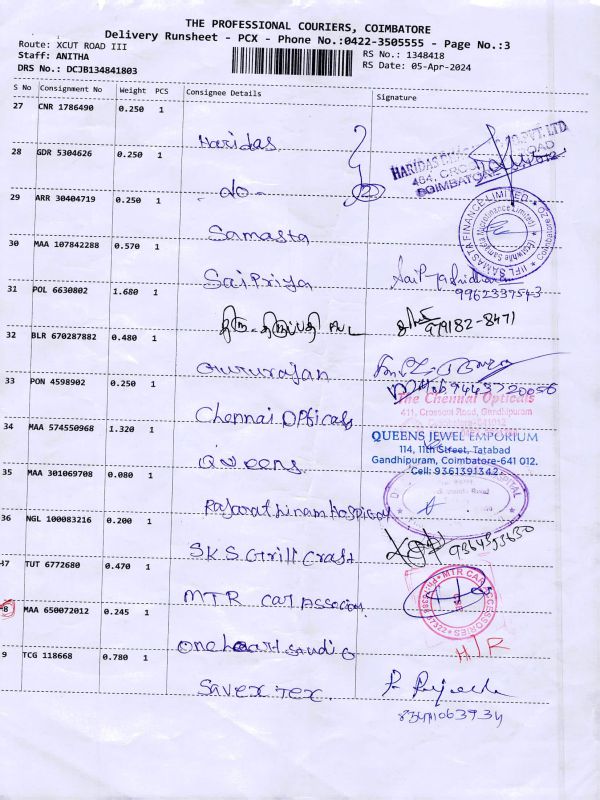 THE PROFESSIONAL COURIERS, COIMBATORE
Delivery Runsheet - PCX - Phone No.:0422-3505555 - Page No.:3
Route: XCUT ROAD III
RS No.: 1348418
Staff: ANITHA
RS Date: 05-Apr-2024
DRS No.: DCJB134841803
S No Consignment No Weight PCS Consignee Details Signature
27 CNR 1786490 0.250 1 Haridas
28 GDR 5304626 0.250 1 -do- 2
29 ARR 30404719 0.250 1 Samasta
IIFL SAMASTA FINANCE LIMITED
30 MAA 107842288 0.570 1 Saipriya
9962337543
31 POL 6630802 1.680 1 திரு. திருப்பதி
979182-8471
32 BLR 670287882 0.480 1 Gururajan
33 PON 4598902 0.250 1 Chennai Opticals
The Chennai Opticals
411, Crosscut Road, Gandhipuram
34 MAA 574550968 1.320 1 Queens
QUEENS JEWEL EMPORIUM
114, 11th Street, Tatabad
Gandhipuram, Coimbatore-641 012.
Cell: 9361391342
35 MAA 301069708 0.080 1 Rajarathinam Hospital
36 NGL 100083216 0.200 1 S.K.S. Grill Craft
37 TUT 6772680 0.470 1 MTR Car
MTR CAR ACCESSORIES
38 MAA 650072012 0.245 1 One heart studio
H/R
9 TCG 118668 0.780 1 Savex Tex.